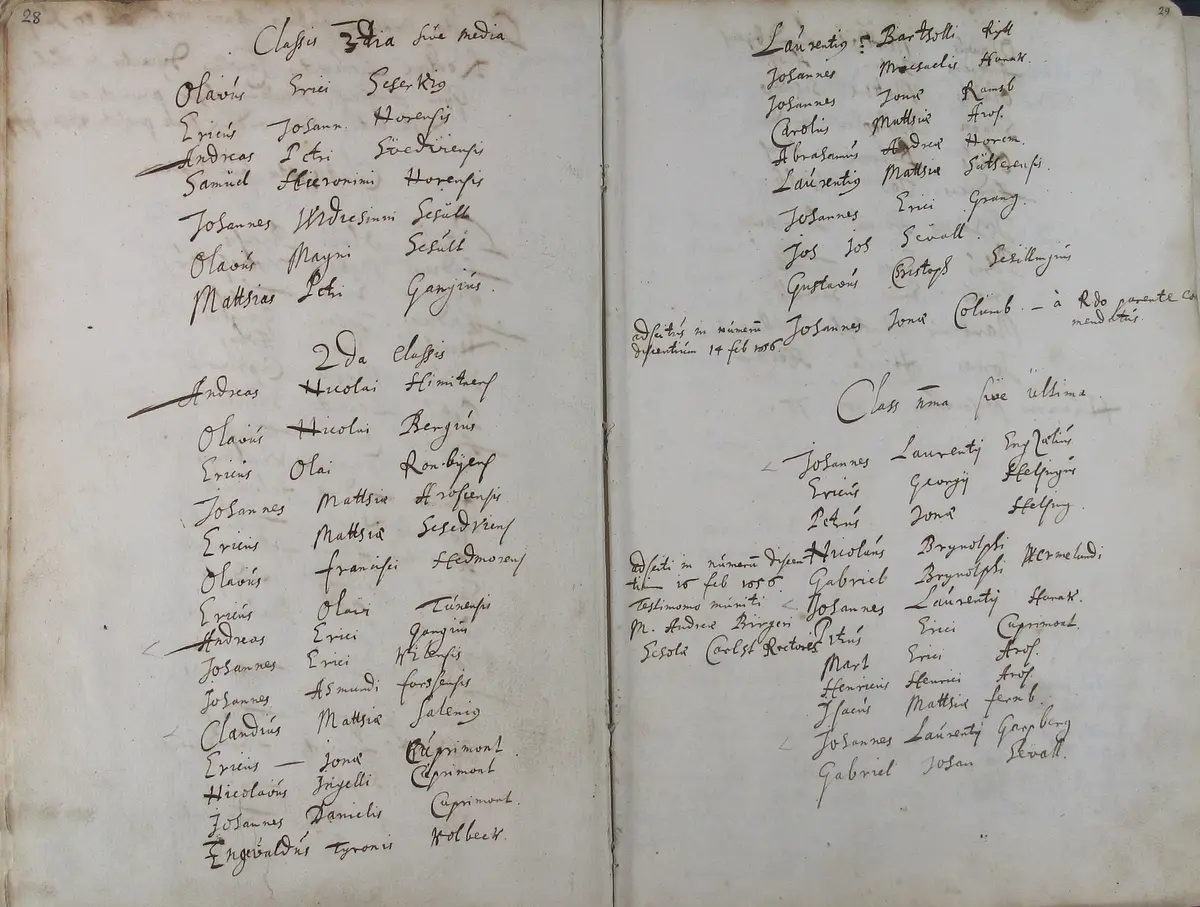 28
Classis 3tia sive media
Olavus Erici
Ericus Johann. Horensis
Andreas Petri
Samuel Hieronimi Horensis
Johannes
Olavus Magni
Matthias Petri Gangius.
2da Classis
Andreas Nicolai
Olavus Nicolai Bergius
Ericus Olai
Johannes Matthiæ Arosiensis
Ericus Matthiæ
Olavus Francisci Hedmorens
Ericus Olavi Tunensis
Andreas Erici Gangius
Johannes Erici
Johannes Asmundi forssensis
Claudius Matthiæ Salenius
Ericus — Jonæ Cuprimont.
Nicolavus Ingelli Cuprimont
Johannes Danielis Cuprimont.
Engevaldus Tyronis Kolbeck.
29
Laurentius Bartholli
Johannes Michaelis
Johannes Jonæ Ramsb
Carolus Matthiæ Aros.
Abrahamus Andreæ Horem.
Laurentius Matthiæ
Johannes Erici Grang.
Joh Joh Sevall.
Gustavus Christoph
adscitus in numerum Johannes Jonæ Columb. — à Rdo parente co
discentium 14 feb 1656. mendatus.
Class sive ultima.
Johannes Laurentij
Ericus Georgij Helsingus
Petrus Jonæ Helsing.
adsciti in numerum discen Nicolaus Brynolphi
tium 16 feb 1656. Gabriel Brynolphi Wermelandi
Testimonio muniti Johannes Laurentij
M. Andreæ Birgeri Petrus Erici Cuprimont.
Scholæ Carlst Rectoris Mart Erici Aros.
Henricus Henrici Aros.
Isacus Matthiæ fernb.
Johannes Laurentij Garpberg
Gabriel Johan Sevall.